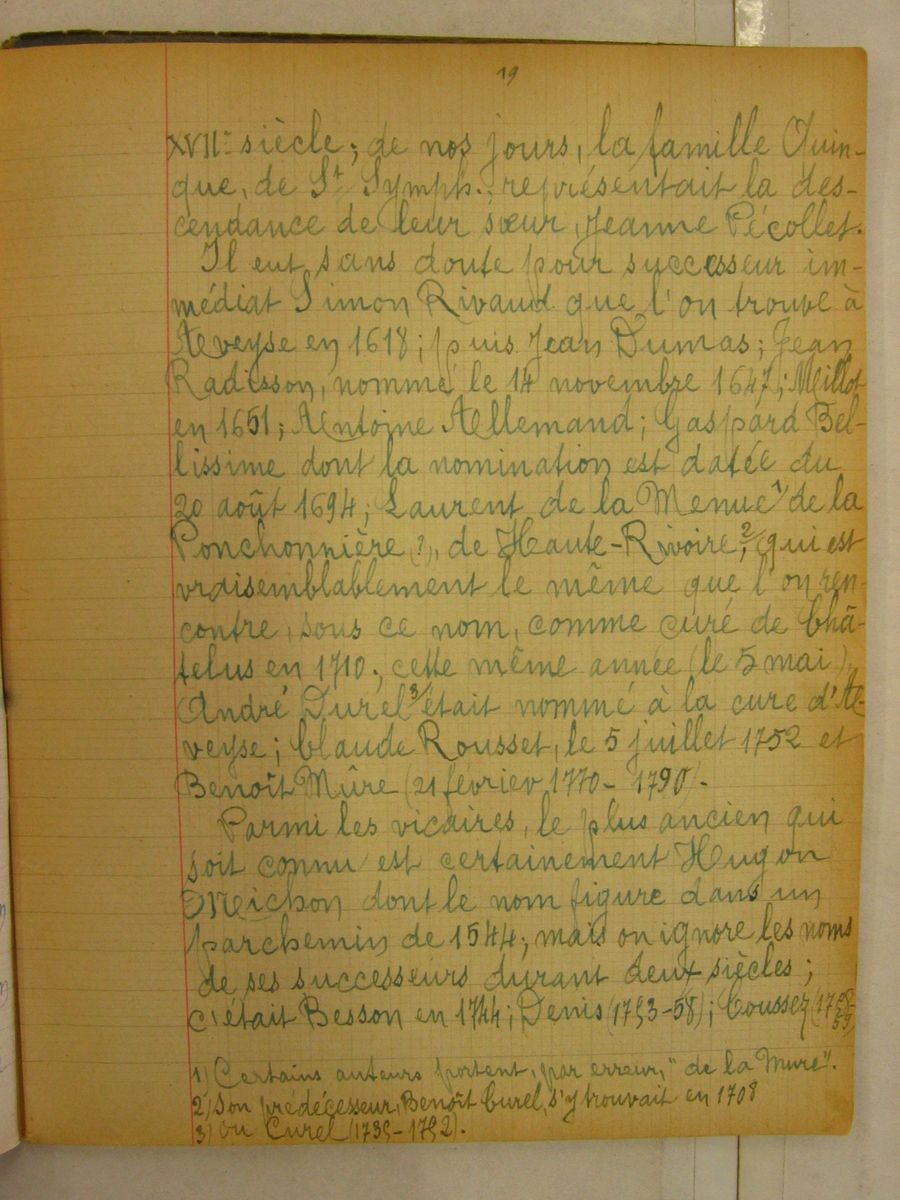 19
XVIIe siècle ; de nos jours, la famille Quin-
que, de St Symph., représentait la des-
cendance de leur sœur, Jeanne Pécollet.
Il eut sans doute pour successeur im-
médiat Simon Rivaud que l'on trouve à
Aveyse en 1618 ; puis Jean Dumas ; Jean
Radisson, nommé le 14 novembre 1647 ; Meillot
en 1651 ; Antoine Allemand ; Gaspard Bel-
lissime dont la nomination est datée du
20 août 1694 ; Laurent de la Menue 1) de la
Ponchonnière (?), de Haute-Rivoire, 2) qui est
vraisemblablement le même que l'on ren-
contre, sous ce nom, comme curé de Châ-
telus en 1710 ; cette même année (le 5 mai),
André Durel 3) était nommé à la cure d'A-
veyse ; Claude Rousset, le 5 juillet 1752 et
Benoît Mûre (21 février 1770 - 1790).
Parmi les vicaires, le plus ancien qui
soit connu est certainement Hugon
Meichon dont le nom figure dans un
parchemin de 1544 ; mais on ignore les noms
de ses successeurs durant deux siècles ;
c'était Besson en 1744 ; Denis (1753-58) ; Coussez (1758-
59)
1) Certains auteurs portent, par erreur, "de la Mure".
2) Son prédécesseur, Benoît Curel, s'y trouvait en 1708
3) Ou Curel (1735-1752).